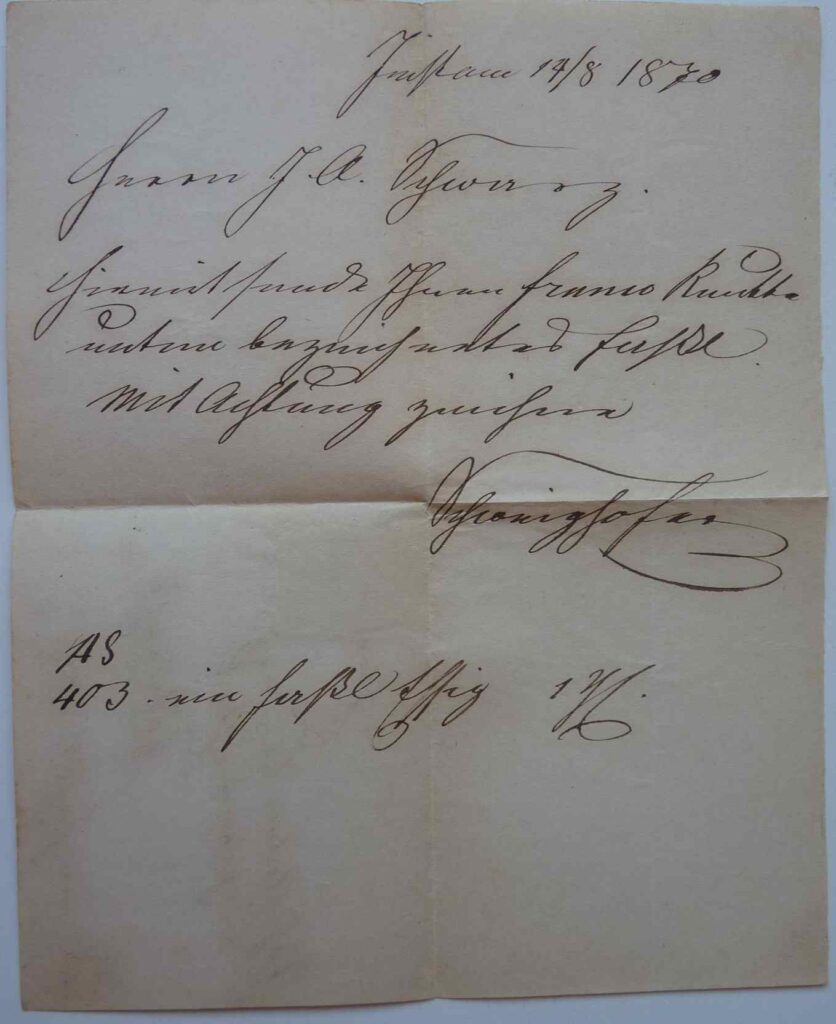 Imst am 14/8 1870
Herrn J. A. Schwarz.
Hiemit sende Ihnen franco
unten bezeichnetes Faßl.
Mit Achtung zeichne
Schweighofer
AS
403. ein Faßl Essig 1